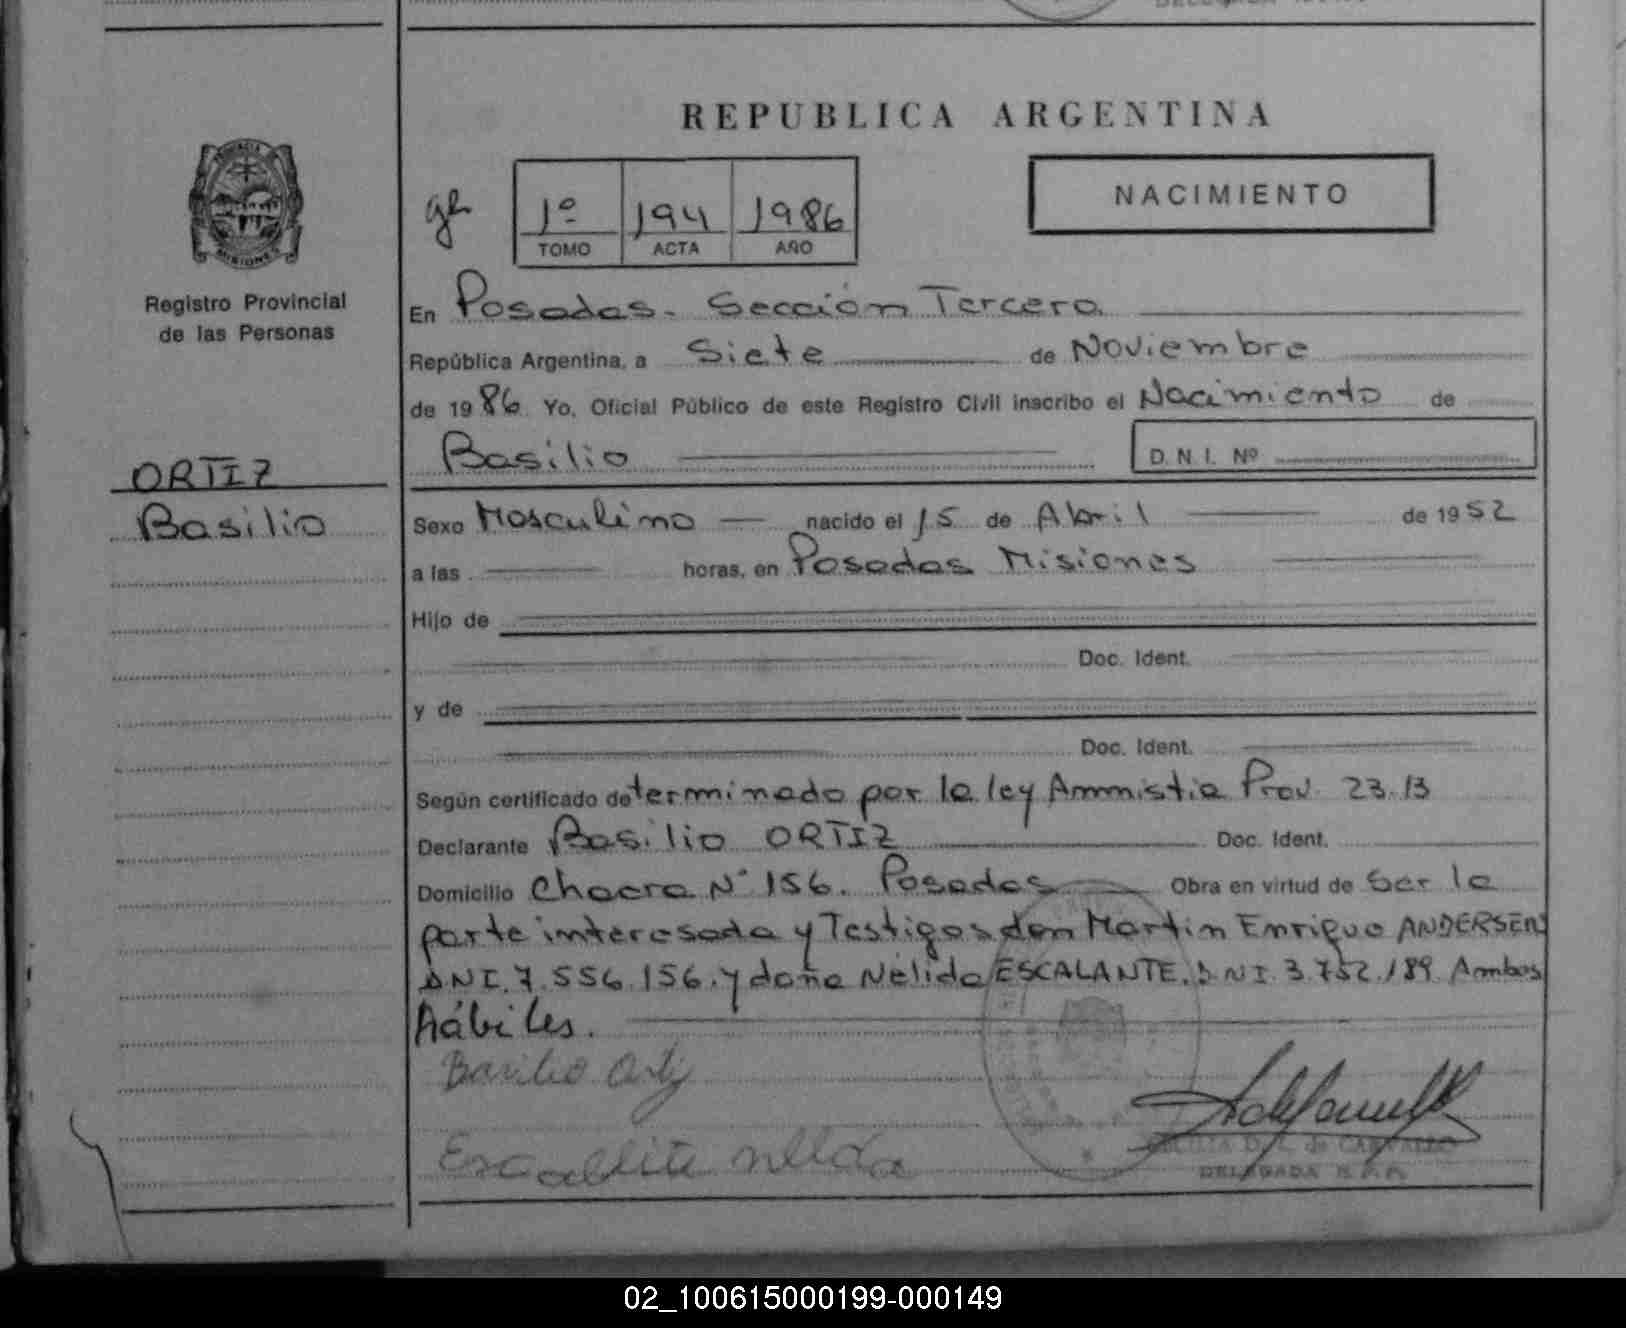 REPUBLICA ARGENTINA
1º 194 1986
TOMO ACTA AÑO
NACIMIENTO
PROVINCIA
MISIONES
Registro Provincial
de las Personas
ORTIZ
Basilio
En Posadas. Sección Tercera
República Argentina, a Siete de Noviembre
de 1986 Yo, Oficial Público de este Registro Civil inscribo el Nacimiento de
Basilio D. N. I. Nº
Sexo Masculino nacido el 15 de Abril de 1952
a las horas, en Posadas Misiones
Hijo de
Doc. Ident.
y de
Doc. Ident.
Según certificado determinado por la ley Ammistia Prov. 23.13
Declarante Basilio ORTIZ Doc. Ident.
Domicilio Chacra Nº 156. Posadas Obra en virtud de Ser la
parte interesada y Testigos don Martin Enrique ANDERSEN
DNI. 7.556.156. y doña Nélida ESCALANTE. DNI. 3.752.189. Ambos
Hábiles.
Basilio Ortiz
DELEGADA R.P.P.
02_100615000199-000149